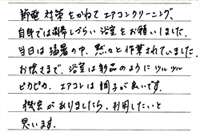 節電対策をかねてエアコンクリーニング、
自身では掃除しづらい浴室をお願いしました。
当日は猛暑の中、黙々と作業されていました。
お陰さまで、浴室は新品のようにツルツル
ピカピカ、エアコンは調子が良いです。
機会がありましたら、利用したいと
思います。